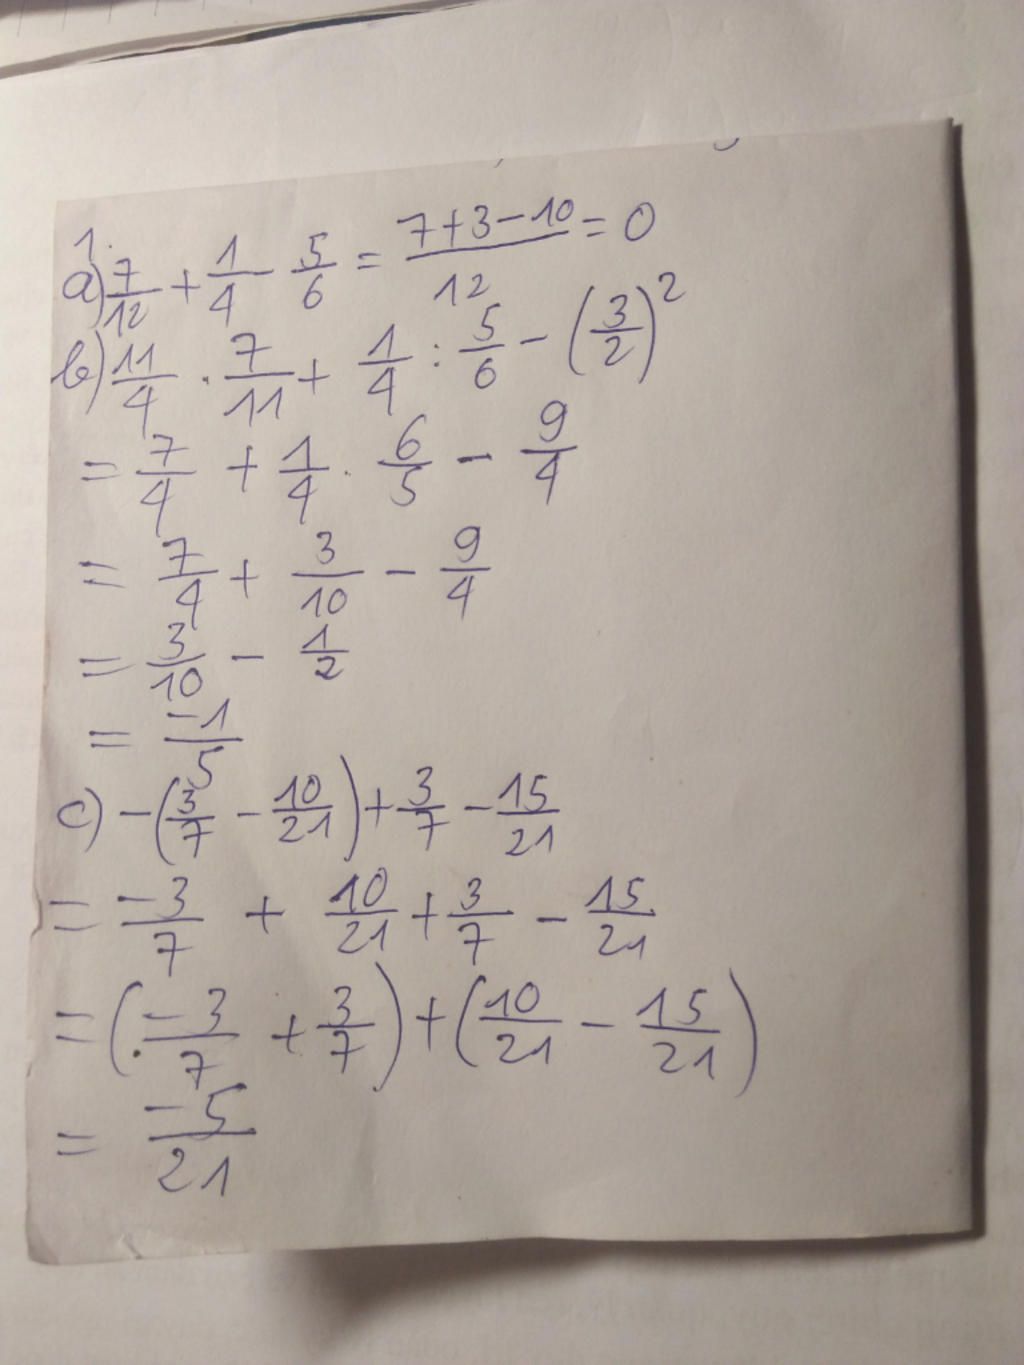 1.
a) 7/12 + 1/4 - 5/6 = (7+3-10)/12 = 0
b) 11/4 . 7/11 + 1/4 : 5/6 - (3/2)²
= 7/4 + 1/4 . 6/5 - 9/4
= 7/4 + 3/10 - 9/4
= 3/10 - 1/2
= -1/5
c) -(3/7 - 10/21) + 3/7 - 15/21
= -3/7 + 10/21 + 3/7 - 15/21
= (-3/7 + 3/7) + (10/21 - 15/21)
= -5/21